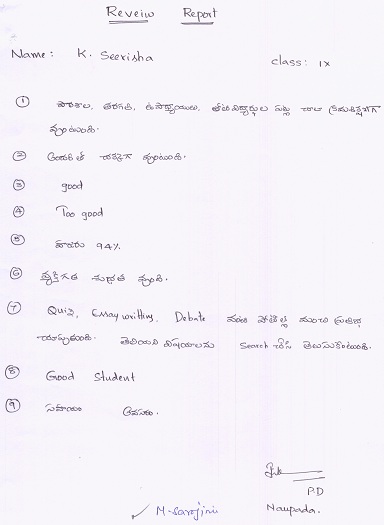 Reveiw Report
Name: K. Seerisha
class: IX
① పాఠశాల, తరగతి, ఉపాధ్యాయులు, తోటి విద్యార్థుల పట్ల చాలా క్రమశిక్షణగా
వుంటుంది.
② అందరితో చక్కగా వుంటుంది.
③ good
④ Too good
⑤ హాజరు 94%
⑥ వ్యక్తిగత శుభ్రత వుంది.
⑦ Quiz, Essay writting, Debate వంటి పోటీల్లో మంచి ప్రతిభ
చూపుతుంది. తెలియని విషయాలను Search చేసి తెలుసుకుంటుంది.
⑧ Good Student
⑨ సహాయం అవసరం.
P.D
M. Sarojini Naupada.